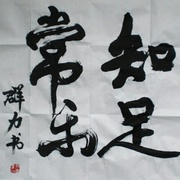 知足
常乐
群力书